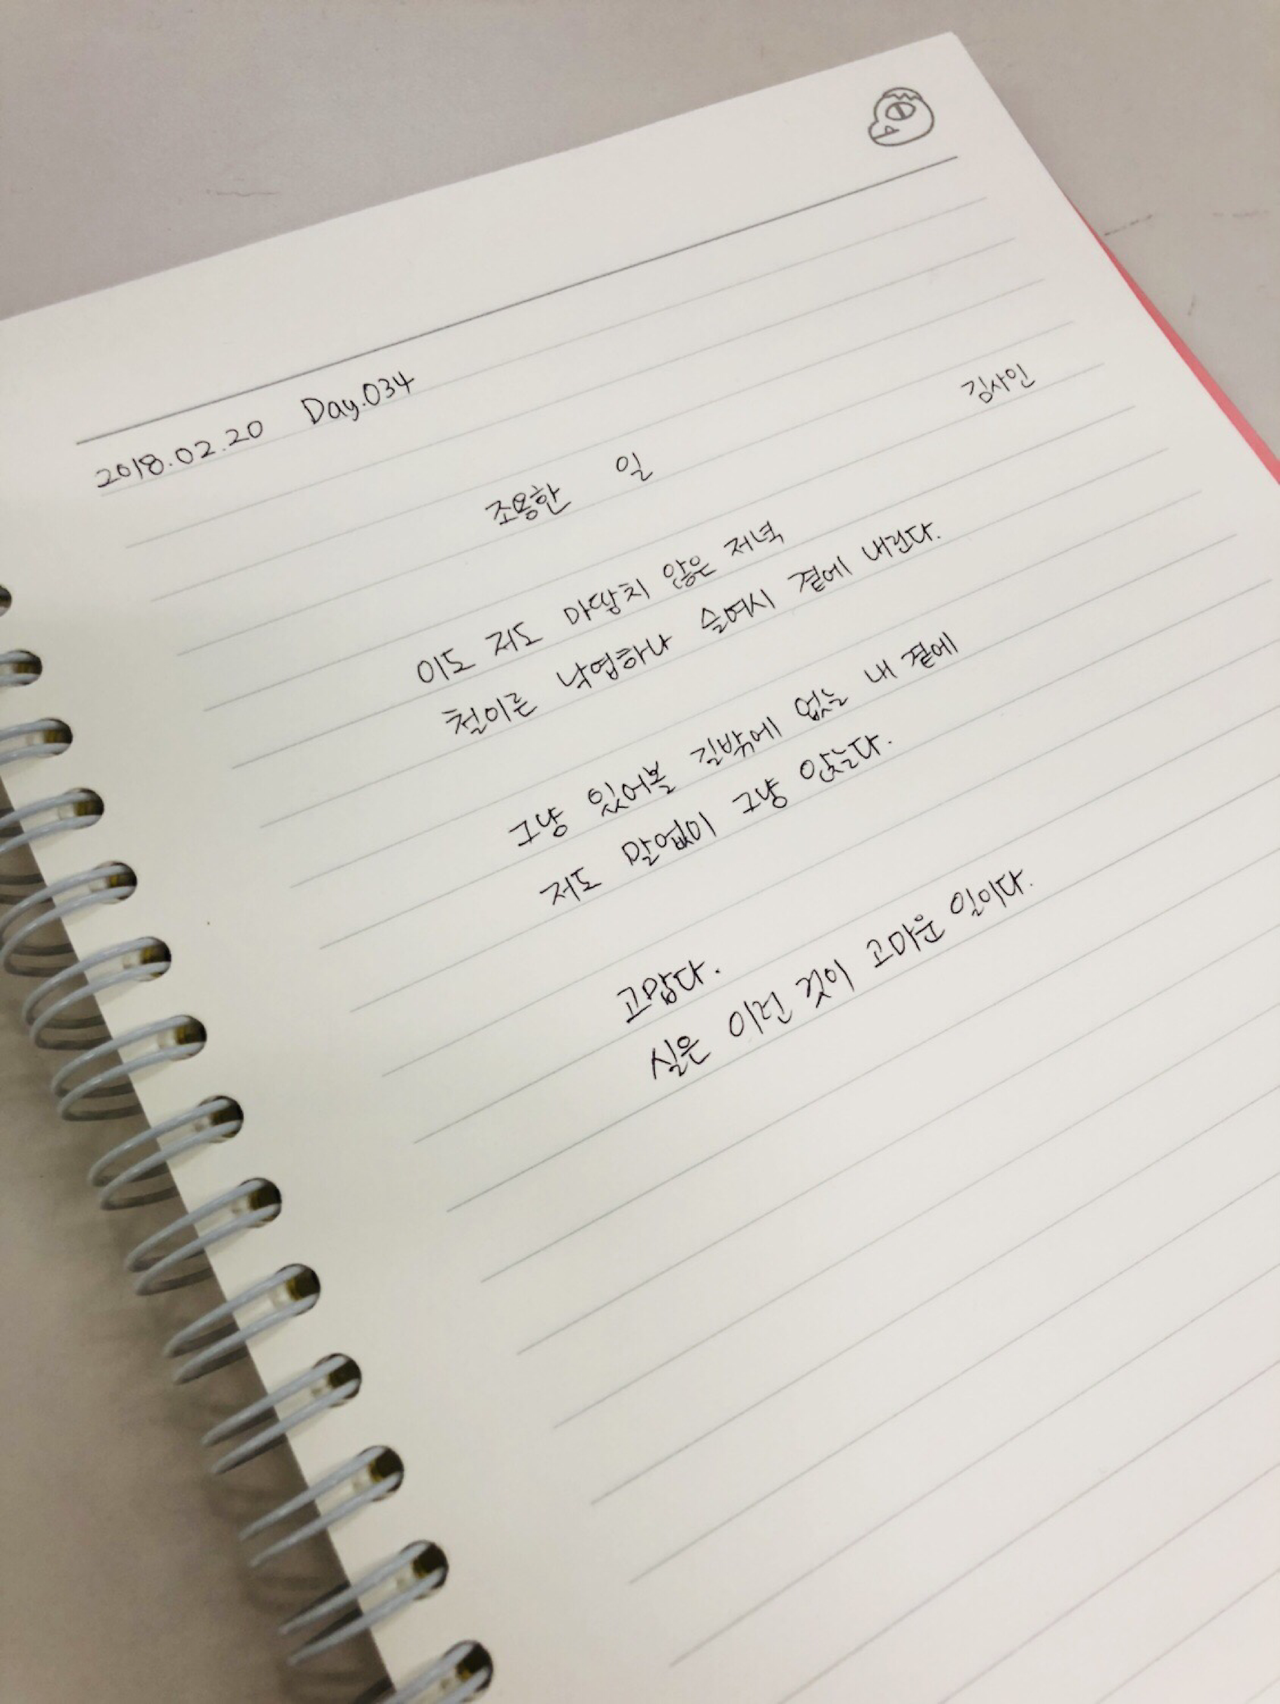 2018.02.20 Day.034
조용한 일
김사인
이도 저도 마땁치 않은 저녁
철이른 낙엽하나 슬며시 곁에 내린다.
그냥 있어볼 길밖에 없는 내 곁에
저도 말없이 그냥 앉는다.
고맙다.
실은 이런 것이 고마운 일이다.